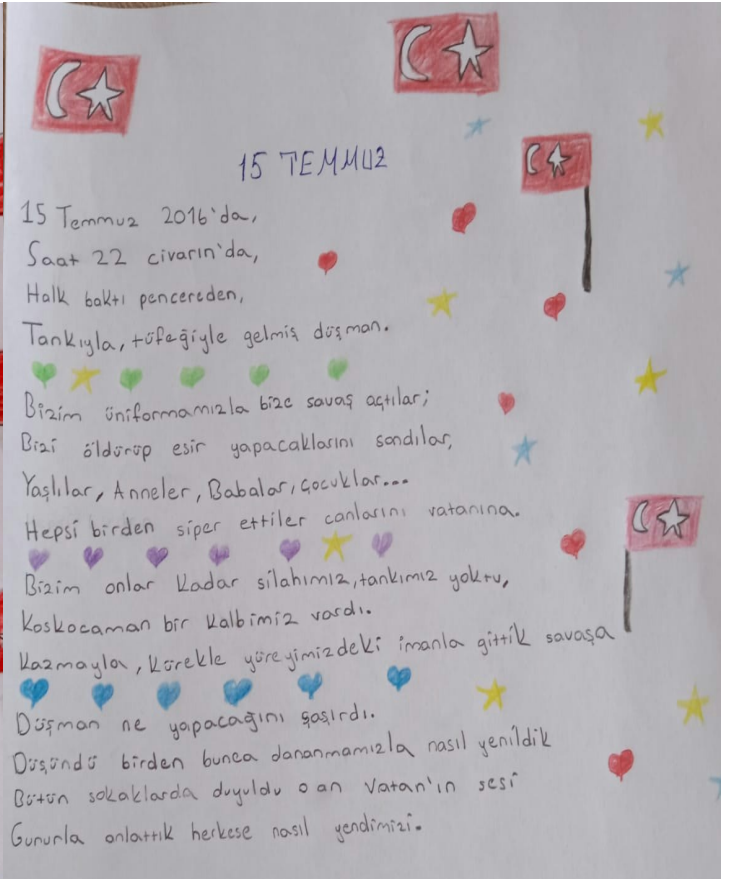 15 TEMMUZ
15 Temmuz 2016'da,
Saat 22 civarın'da,
Halk baktı pencereden,
Tankıyla, tüfeğiyle gelmiş düşman.
Bizim üniformamızla bize savaş açtılar;
Bizi öldürüp esir yapacaklarını sandılar,
Yaşlılar, Anneler, Babalar, çocuklar...
Hepsi birden siper ettiler canlarını vatanına.
Bizim onlar kadar silahımız, tankımız yoktu,
Koskocaman bir kalbimiz vardı.
Kazmayla, kürekle yüreyimizdeki imanla gittik savaşa
Düşman ne yapacağını şaşırdı.
Düşündü birden bunca dananmamızla nasıl yenildik
Bütün sokaklarda duyuldu o an Vatan'ın sesi
Gururla anlattık herkese nasıl yendimizi.